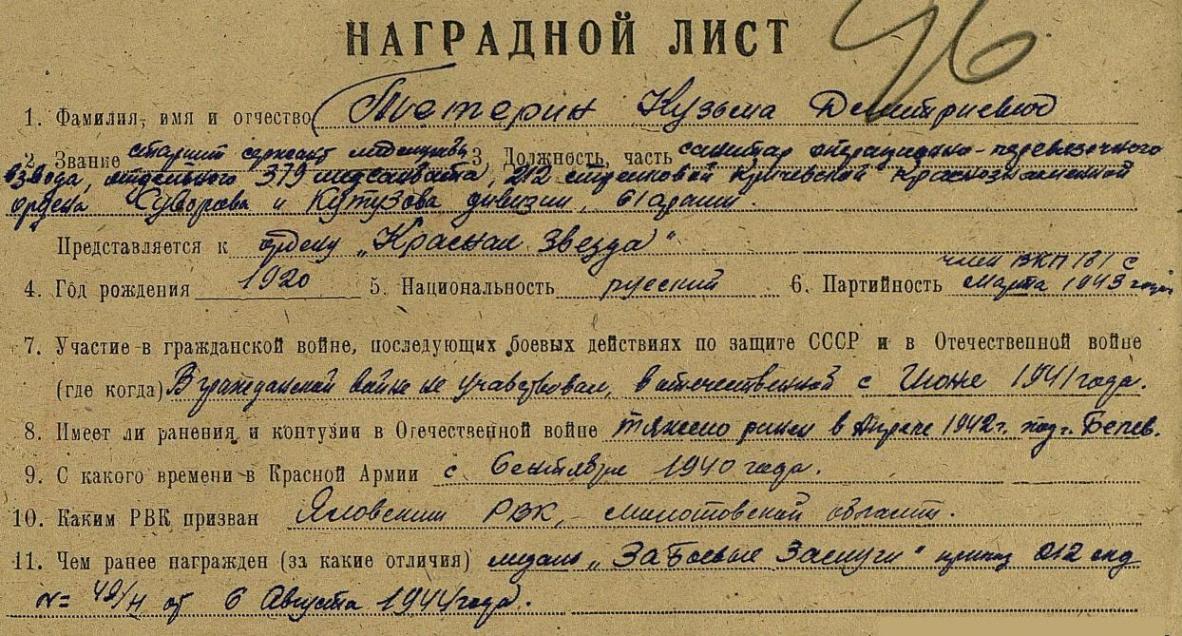 НАГРАДНОЙ ЛИСТ 46
1. Фамилия, имя и отчество Тетерин Кузьма Демитриевич
2. Звание старший сержант медслужбы 3. Должность, часть санитар операционно-перевязочного
взвода, отдельного 379 медсанбата, 212 стрелковой Кричевской Краснознаменной
ордена Суворова и Кутузова дивизии, 61 армии.
Представляется к ордену „Красная Звезда“
4. Год рождения 1920 5. Национальность русский 6. Партийность член ВКП(б) с
марта 1943 года
7. Участие в гражданской войне, последующих боевых действиях по защите СССР и в Отечественной войне
(где когда) В гражданской войне не участвовал, в отечественной с Июне 1941 года.
8. Имеет ли ранения и контузии в Отечественной войне тяжело ранен в Апреле 1942 г. под г. Белев.
9. С какого времени в Красной Армии с Сентября 1940 года.
10. Каким РВК призван РВК, Молотовской области.
11. Чем ранее награжден (за какие отличия) медаль „За Боевые Заслуги“ приказ 212 сд
№ 49/н от 6 Августа 1944 года.